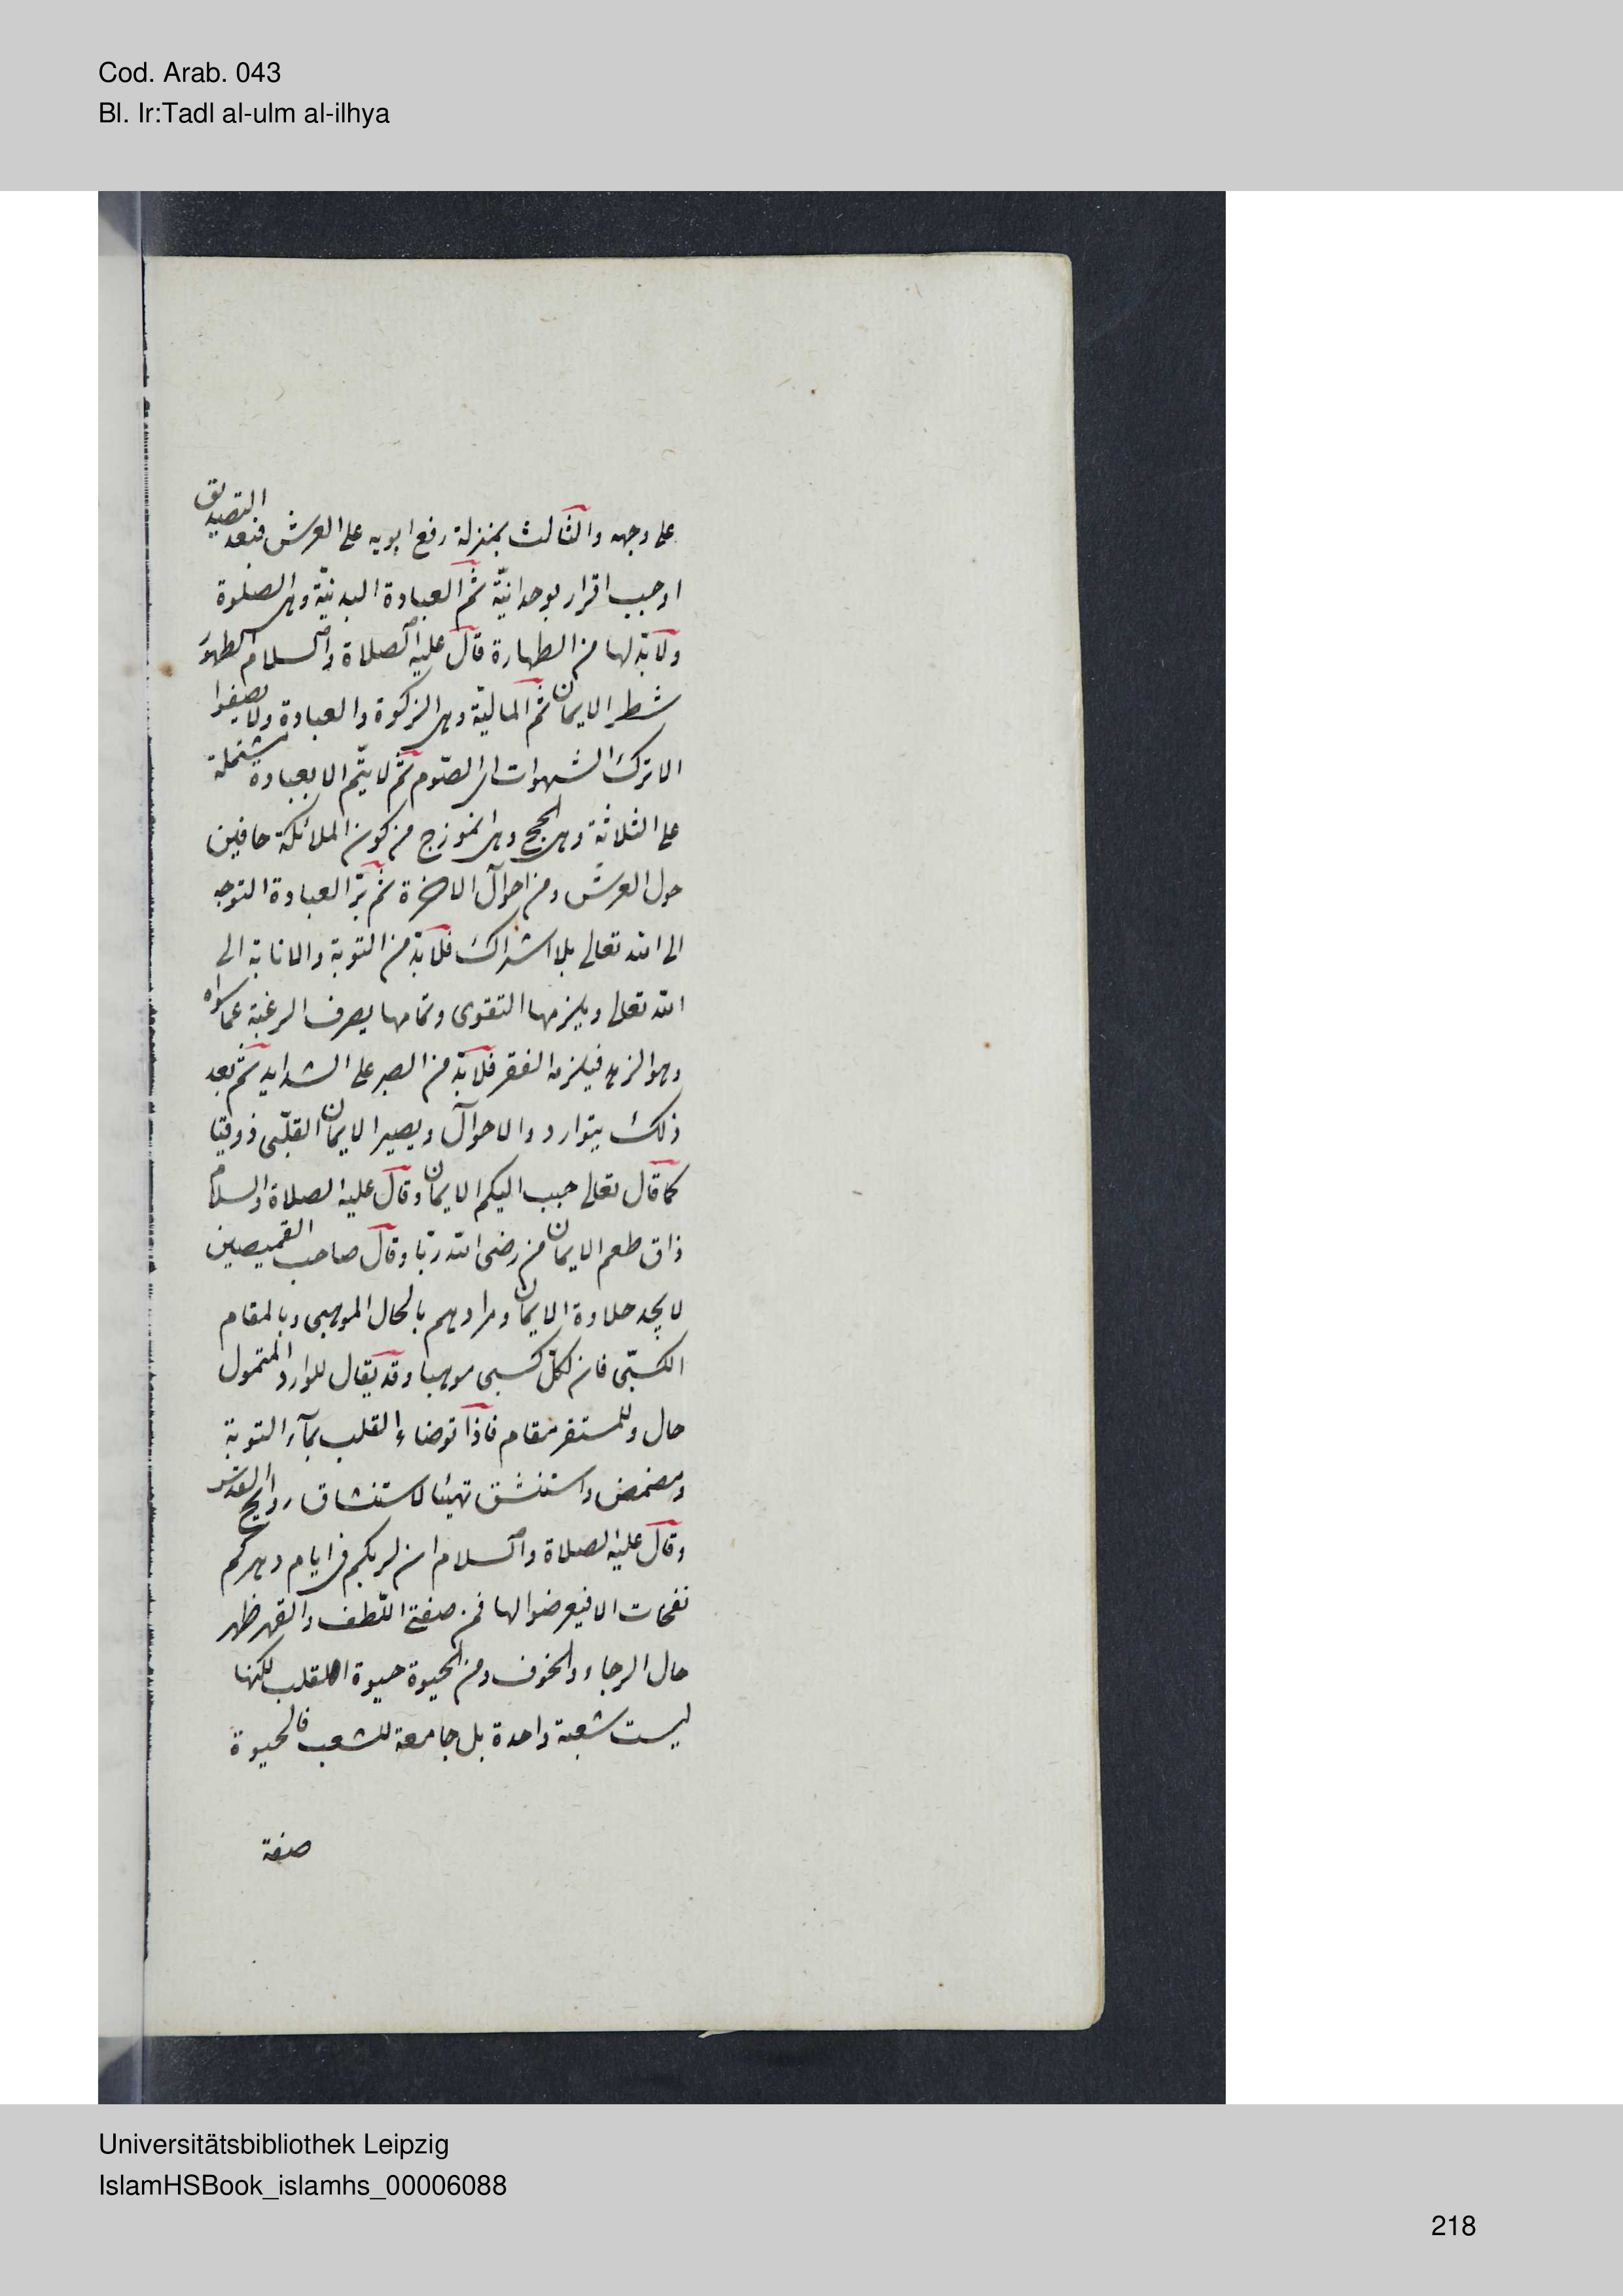 Cod. Arab. 043
Bl. Ir:Tadl al-ulm al-ilhya
على وجهه والثالث بمنزلة رفع ابويه على العرش فبعد التصديق
اوجب اقرار بوحدانيّة ثمّ العبادة البدنيّة وهى الصلوة
ولابدّ لها من الطهارة قال عليه الصلاة والسلام الطهور
شطر الايمان ثمّ الماليّة وهى الزكوة والعبادة ولا يصفوا
الا بترك الشهوات اى الصّوم ثمّ لا يتّم الا بعبادة مشتملة
على الثلاثة وهى الحج وهى انموزج من كون الملائكة حافين
حول العرش ومن احوال الاخرة ثمّ سرّ العبادة التوجه
الى الله تعالى بلا اشراك فلابدّ من التوبة والانابة الى
الله تعالى ويلزمها التقوى وتمامها يصرف الرغبة عما سواه
وهو الزهد فيلزمه الفقر فلابدّ من الصبر على الشدايد ثمّ بعد
ذلك يتوارد والاحوال ويصير الايمان القلبّى ذوقيا
كما قال تعالى حبب اليكم الايمان وقال عليه الصلاة والسلام
ذاق طعم الايمان من رضى الله ربّا وقال صاحب القميصين
لا يجد حلاوة الايمان ومرادهم بالحال الموهبى وبالمقام
الكسبّى فان لكلّ كسبى موهبا وقد يقال للوارد المتحول
حال وللمستقر مقام فاذا توضاء القلب بمآء التوبة
ومضمض واستنشق تهيئا لاستنشاق روايح القدس
وقال عليه الصلاة والسلام ان لربكم فى ايام دهركم
نفحات الا فيعرضوا لها فمن صفتى اللّطف والقهر ظهر
حال الرجاء والخوف ومن الحيوة حيوة القلب لكنها
ليست شعبة واحدة بل جامعة للشعب فالحيوة
صفة
Universitätsbibliothek Leipzig
IslamHSBook_islamhs_00006088
218